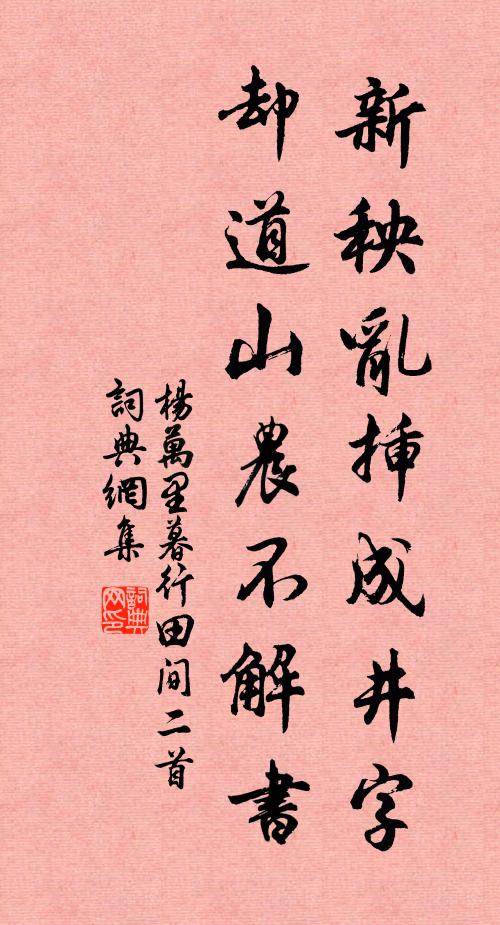 新秧亂挿成井字
却道山農不解書
楊萬里暮行田間二首
詞典網集
詞典网印